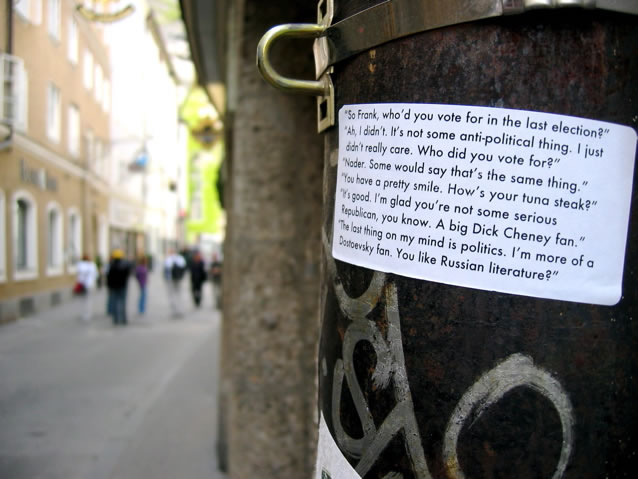 "So Frank, who'd you vote for in the last election?"
"Ah, I didn't. It's not some anti-political thing. I just
didn't really care. Who did you vote for?"
"Nader. Some would say that's the same thing."
"You have a pretty smile. How's your tuna steak?"
"It's good. I'm glad you're not some serious
Republican, you know. A big Dick Cheney fan."
"The last thing on my mind is politics. I'm more of a
Dostoevsky fan. You like Russian literature?"